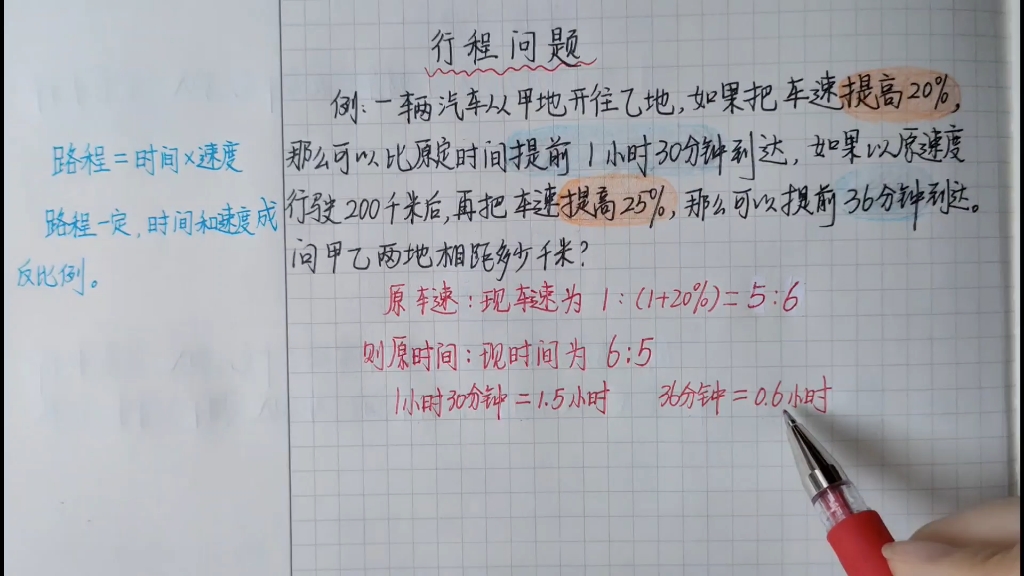 行程问题
例:一辆汽车从甲地开往乙地,如果把车速提高20%,
那么可以比原定时间提前1小时30分钟到达,如果以原速度
行驶200千米后,再把车速提高25%,那么可以提前36分钟到达。
问甲乙两地相距多少千米?
路程=时间×速度
路程一定,时间和速度成
反比例。
原车速:现车速为 1:(1+20%)=5:6
则原时间:现时间为 6:5
1小时30分钟=1.5小时 36分钟=0.6小时